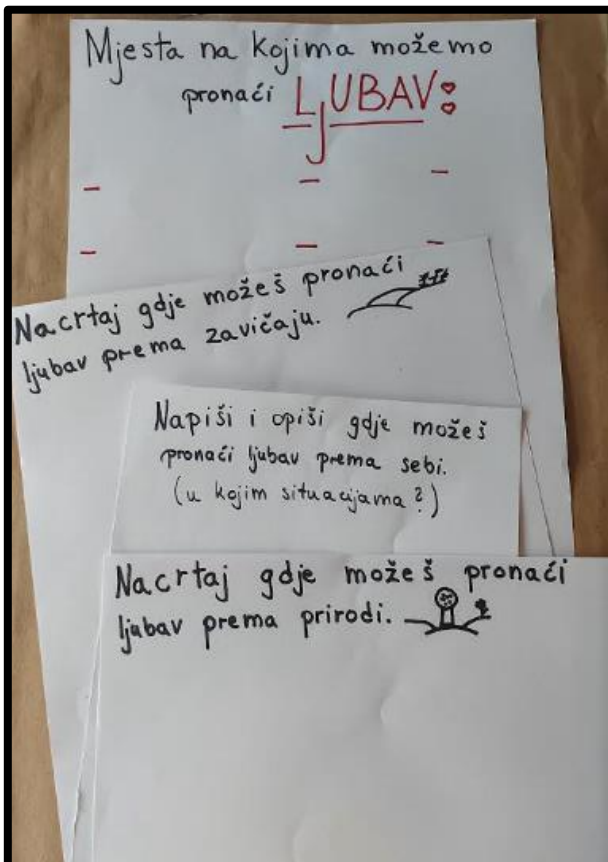 Mjesta na kojima možemo
pronaći LJUBAV:
-   -   -
-   -   -
Nacrtaj gdje možeš pronaći
ljubav prema zavičaju.
Napiši i opiši gdje možeš
pronaći ljubav prema sebi.
(u kojim situacijama?)
Nacrtaj gdje možeš pronaći
ljubav prema prirodi.